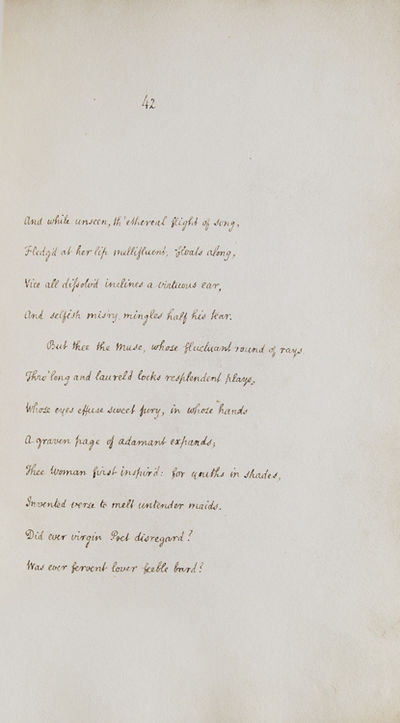 42
And while unseen, th' ethereal flight of song,
Fledg'd at her lip mellifluent, floats along,
Vice all dissolv'd inclines a virtuous ear,
And selfish misry mingles half his tear.
But thee the Muse, whose fluctuant round of rays
Thro' long and laurel'd locks resplendent plays,
Whose eyes effuse sweet fury, in whose hands
A graven page of adamant expands,
Thee Woman first inspir'd: for youths in shades,
Invented verse to melt untender maids.
Did ever virgin Poet disregard?
Was ever fervent lover feeble bard?